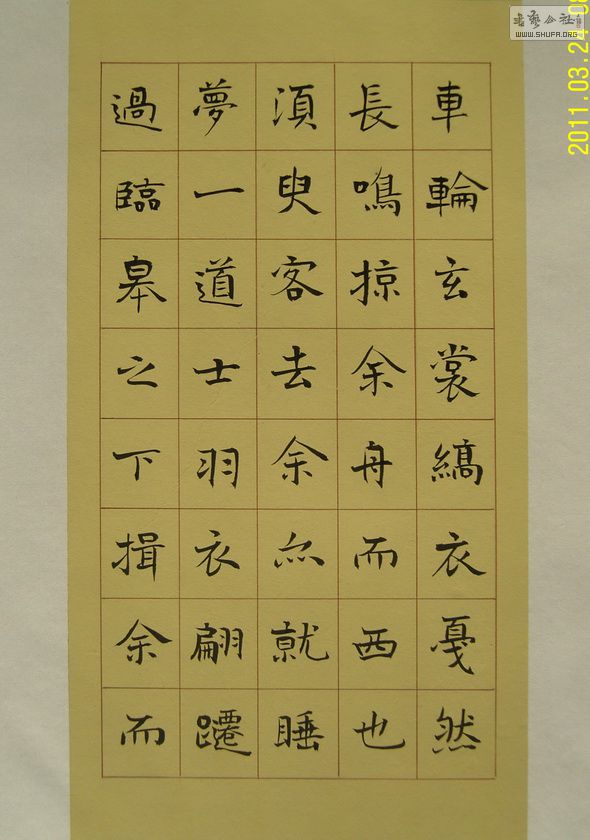 車輪玄裳縞衣戛然
長鳴掠余舟而西也
湏臾客去余亦就睡
夢一道士羽衣翩躚
過臨皋之下揖余而
WWW.SHUFA.ORG